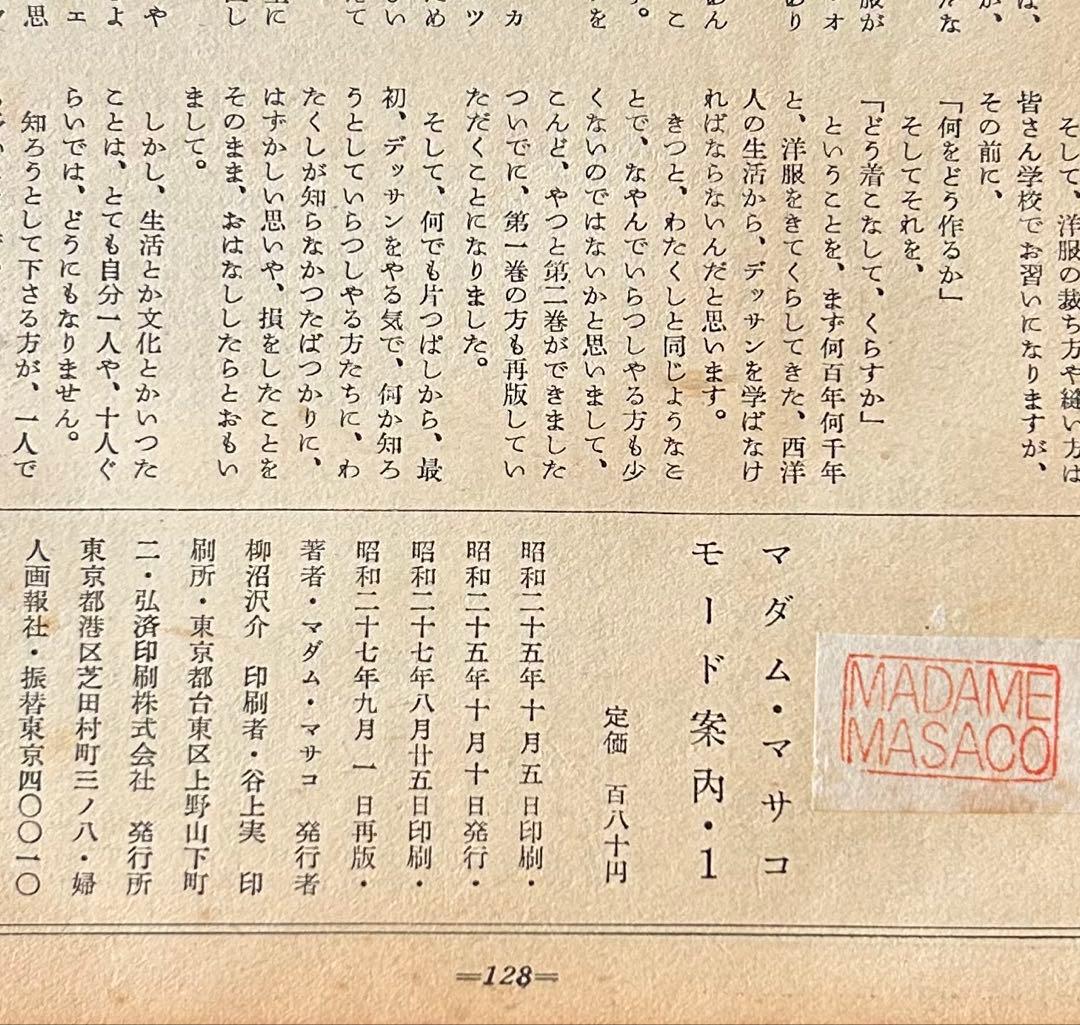 そして、洋服の裁ち方や縫い方は
皆さん学校でお習いになりますが、
その前に、
「何をどう作るか」
そしてそれを、
「どう着こなして、くらすか」
ということを、まず何百年何千年
と、洋服をきてくらしてきた、西洋
人の生活から、デッサンを学ばなけ
ればならないんだと思います。
きつと、わたくしと同じようなこ
とで、なやんでいらつしやる方も少
くないのではないかと思いまして、
こんど、やつと第二巻ができました
ついでに、第一巻の方も再版してい
ただくことになりました。
そして、何でも片つぱしから、最
初、デッサンをやる気で、何か知ろ
うとしていらつしやる方たちに、わ
たくしが知らなかつたばつかりに、
はずかしい思いや、損をしたことを
そのまま、おはなししたらとおもい
まして。
しかし、生活とか文化とかいつた
ことは、とても自分一人や、十人ぐ
らいでは、どうにもなりません。
知ろうとして下さる方が、一人で
MADAME
MASACO
マダム・マサコ
モード案内・1
定価 百八十円
昭和二十五年十月五日印刷・
昭和二十五年十月十日発行・
昭和二十七年八月廿五日印刷・
昭和二十七年九月一日再版・
著者・マダム・マサコ 発行者
柳沼沢介 印刷者・谷上実 印
刷所・東京都台東区上野山下町
二・弘済印刷株式会社 発行所
東京都港区芝田村町三ノ八・婦
人画報社・振替東京四〇〇一〇
=128=